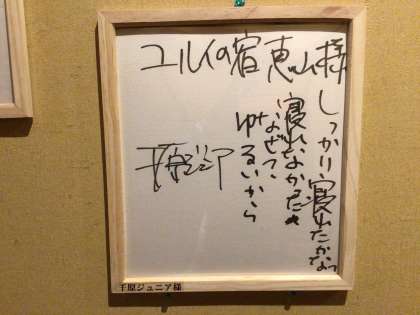 ユルイの宿 恵山様
しっかり寝れたかなって
寝れなかったぁ
なぜっ、
ゆるいから
千原ジュニア
千原ジュニア様